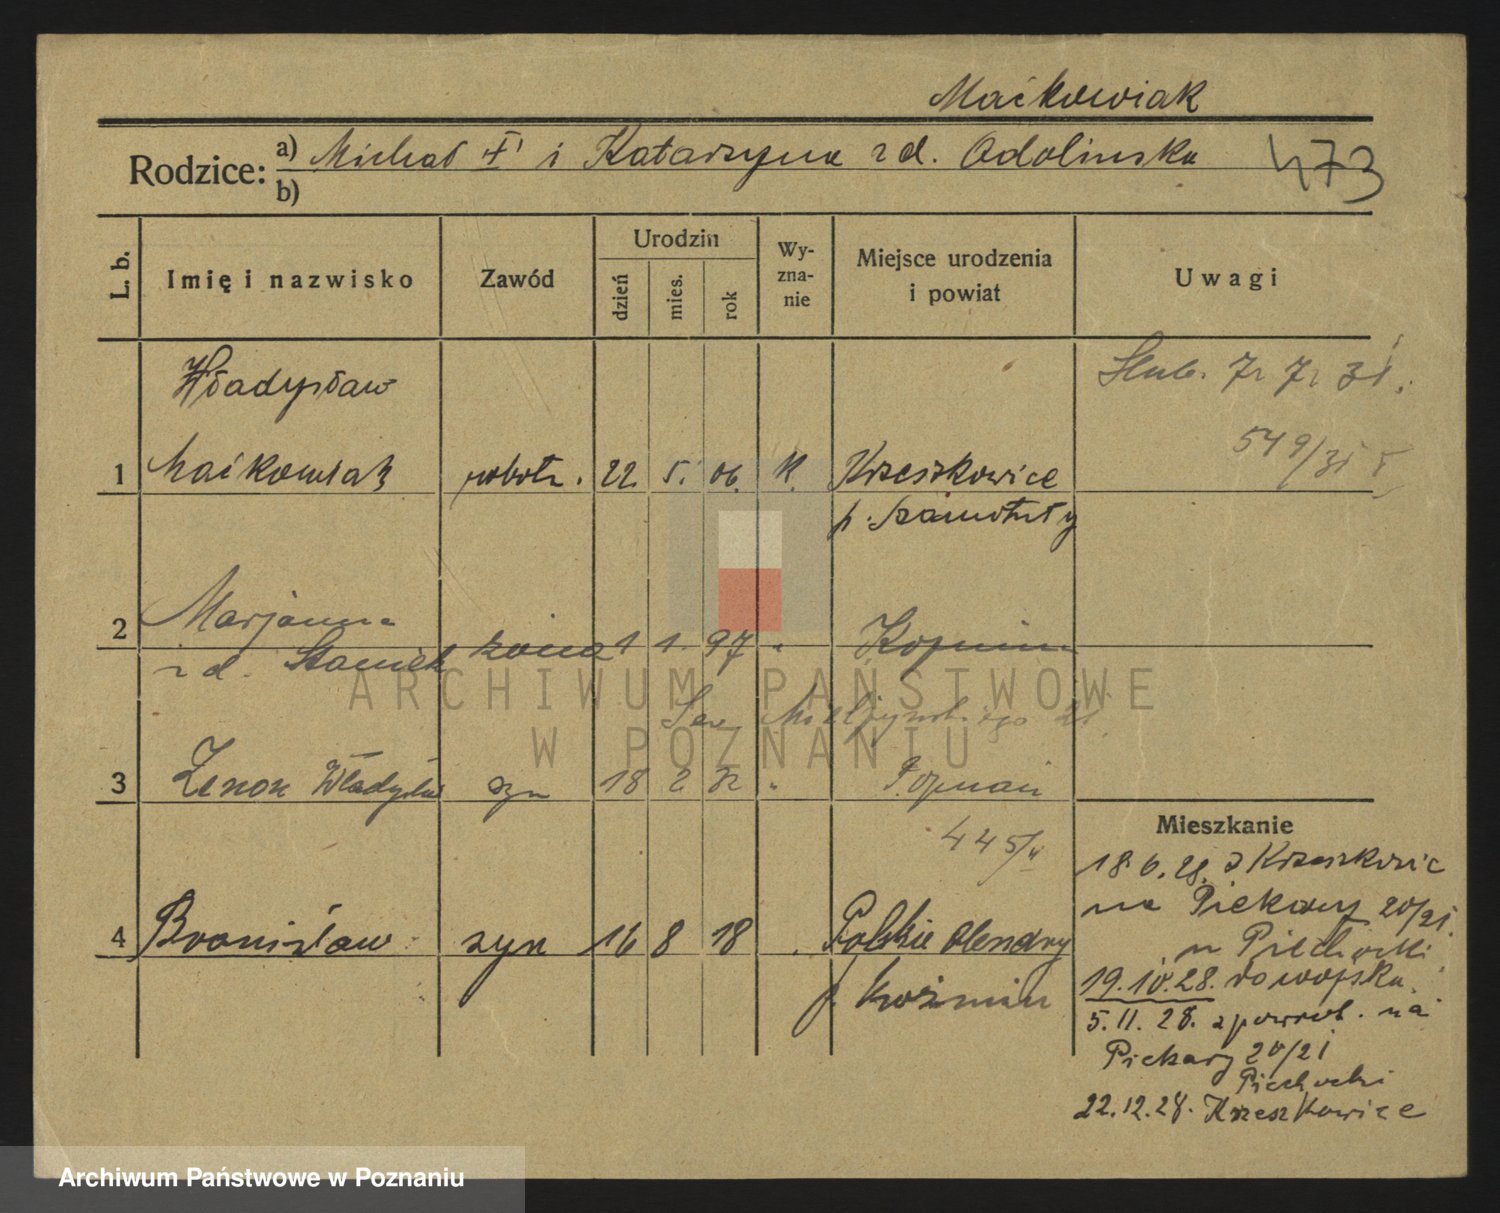 Maćkowiak
Rodzice: a) Michał I i Katarzyna zd. Adolinska
b)
473
L. b. Imię i nazwisko Zawód Urodzin dzień mies. rok Wy-zna-nie Miejsce urodzenia i powiat Uwagi
Władysław
Ślub. 7. 31.
549/31
1 Maćkowiak robotn. 22. 5. 06. K. Krzeszkowice
p. Szamotuły
2 Marjanna żona 1 1. 97 "
zd.
3 Zenon Władysław syn 18 2 32 " Poznań
445/
Mieszkanie
18.6.28. z Krzeszkowic
na Piekary 20/21.
4 Bronisław syn 16 8 18 Polskie Olendry
u Piechocki
p. Koźmin
19.10.28. do wojska.
5.11.28. z powrot. na
Piekary 20/21
Piechocki
22.12.28. Krzeszkowice
ARCHIWUM PAŃSTWOWE
W POZNANIU
Archiwum Państwowe w Poznaniu